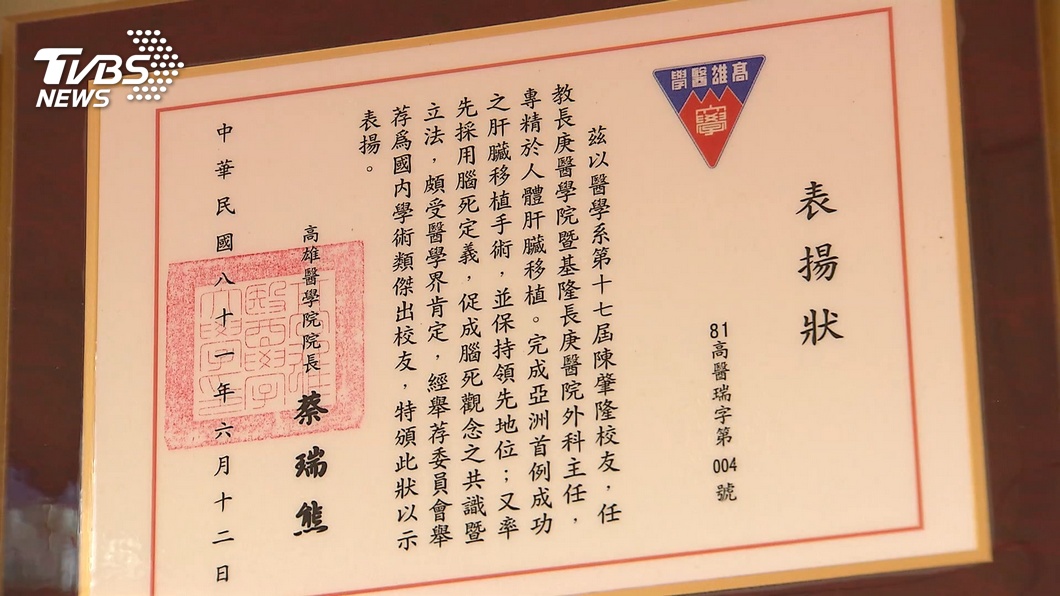 TVBS
NEWS
高雄醫學
表揚狀
81高醫瑞字第004號
茲以醫學系第十七屆陳肇隆校友，任
教長庚醫學院暨基隆長庚醫院外科主任，
專精於人體肝臟移植。完成亞洲首例成功
之肝臟移植手術，並保持領先地位；又率
先採用腦死定義，促成腦死觀念之共識暨
立法，頗受醫學界肯定，經舉荐委員會舉
荐爲國內學術類傑出校友，特頒此狀以示
表揚。
高雄醫學院院長 蔡瑞熊
中華民國八十一年六月十二日